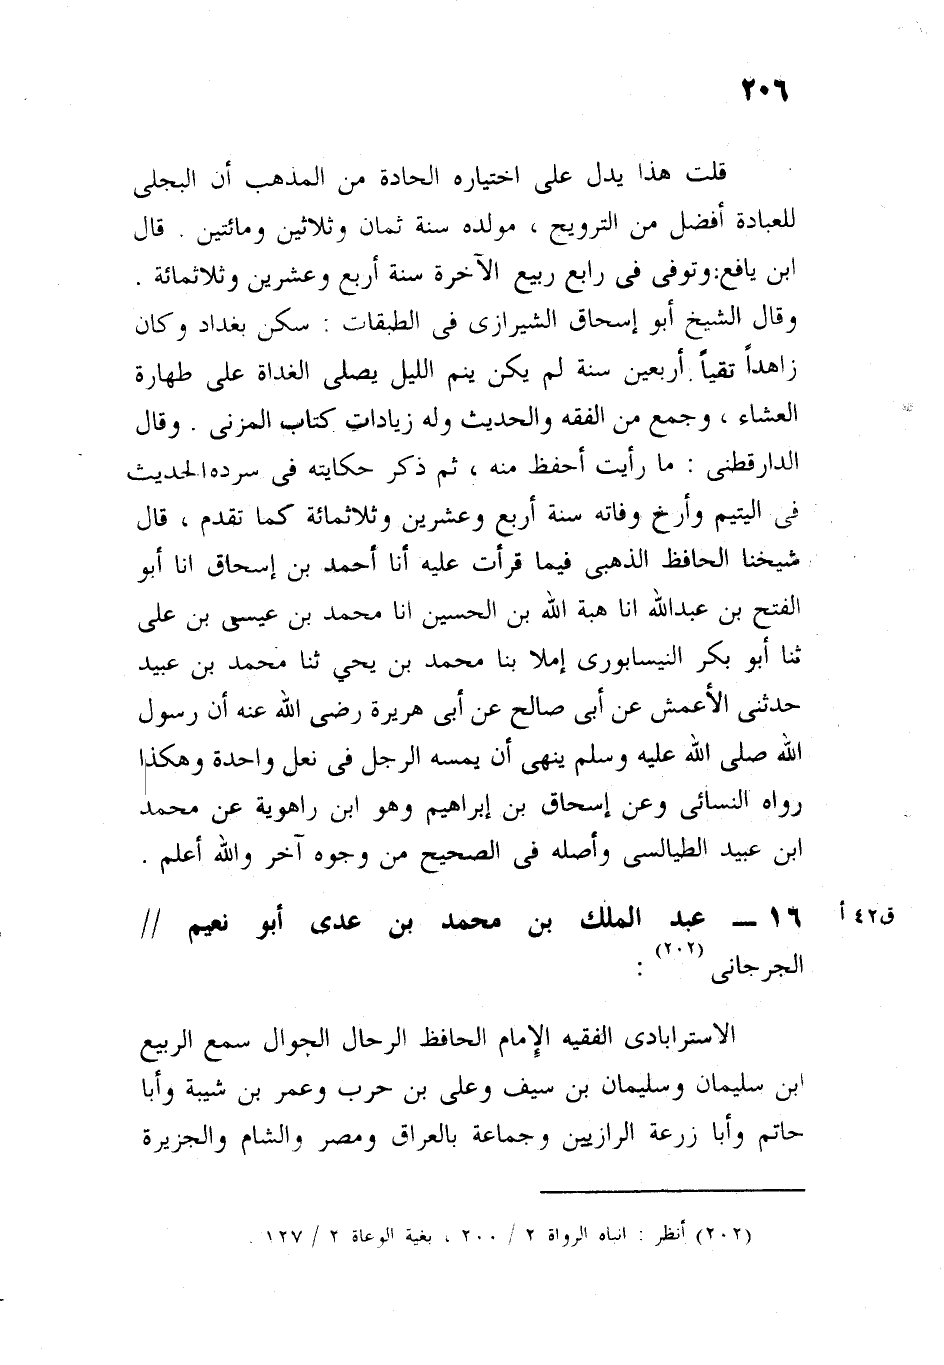 ٢٠٦
قلت هذا يدل على اختياره الحادة من المذهب أن البجلى
للعبادة أفضل من الترويج ، مولده سنة ثمان وثلاثين ومائتين . قال
ابن يافع: وتوفى فى رابع ربيع الآخرة سنة أربع وعشرين وثلاثمائة .
وقال الشيخ أبو إسحاق الشيرازى فى الطبقات : سكن بغداد وكان
زاهداً تقياً أربعين سنة لم يكن ينم الليل يصلى الغداة على طهارة
العشاء ، وجمع من الفقه والحديث وله زيادات كتاب المزنى . وقال
الدارقطنى : ما رأيت أحفظ منه ، ثم ذكر حكايته فى سرده الحديث
فى اليتيم وأرخ وفاته سنة أربع وعشرين وثلاثمائة كما تقدم ، قال
شيخنا الحافظ الذهبى فيما قرأت عليه أنا أحمد بن إسحاق انا أبو
الفتح بن عبدالله انا هبة الله بن الحسين انا محمد بن عيسى بن على
ثنا أبو بكر النيسابورى إملا بنا محمد بن يحي ثنا محمد بن عبيد
حدثنى الأعمش عن أبى صالح عن أبى هريرة رضى الله عنه أن رسول
الله صلى الله عليه وسلم ينهى أن يمسه الرجل فى نعل واحدة وهكذا
رواه النسائى وعن إسحاق بن إبراهيم وهو ابن راهوية عن محمد
ابن عبيد الطيالسى وأصله فى الصحيح من وجوه آخر والله أعلم .
ق٤٢ أ
١٦ ــ عبد الملك بن محمد بن عدى أبو نعيم //
الجرجانى (٢٠٢) :
الاسترابادى الفقيه الإمام الحافظ الرحال الجوال سمع الربيع
ابن سليمان وسليمان بن سيف وعلى بن حرب وعمر بن شيبة وأبا
حاتم وأبا زرعة الرازيين وجماعة بالعراق ومصر والشام والجزيرة
(٢٠٢) أنظر : انباه الرواة ٢ / ٢٠٠ ، بغية الوعاة ٢ / ١٢٧ .